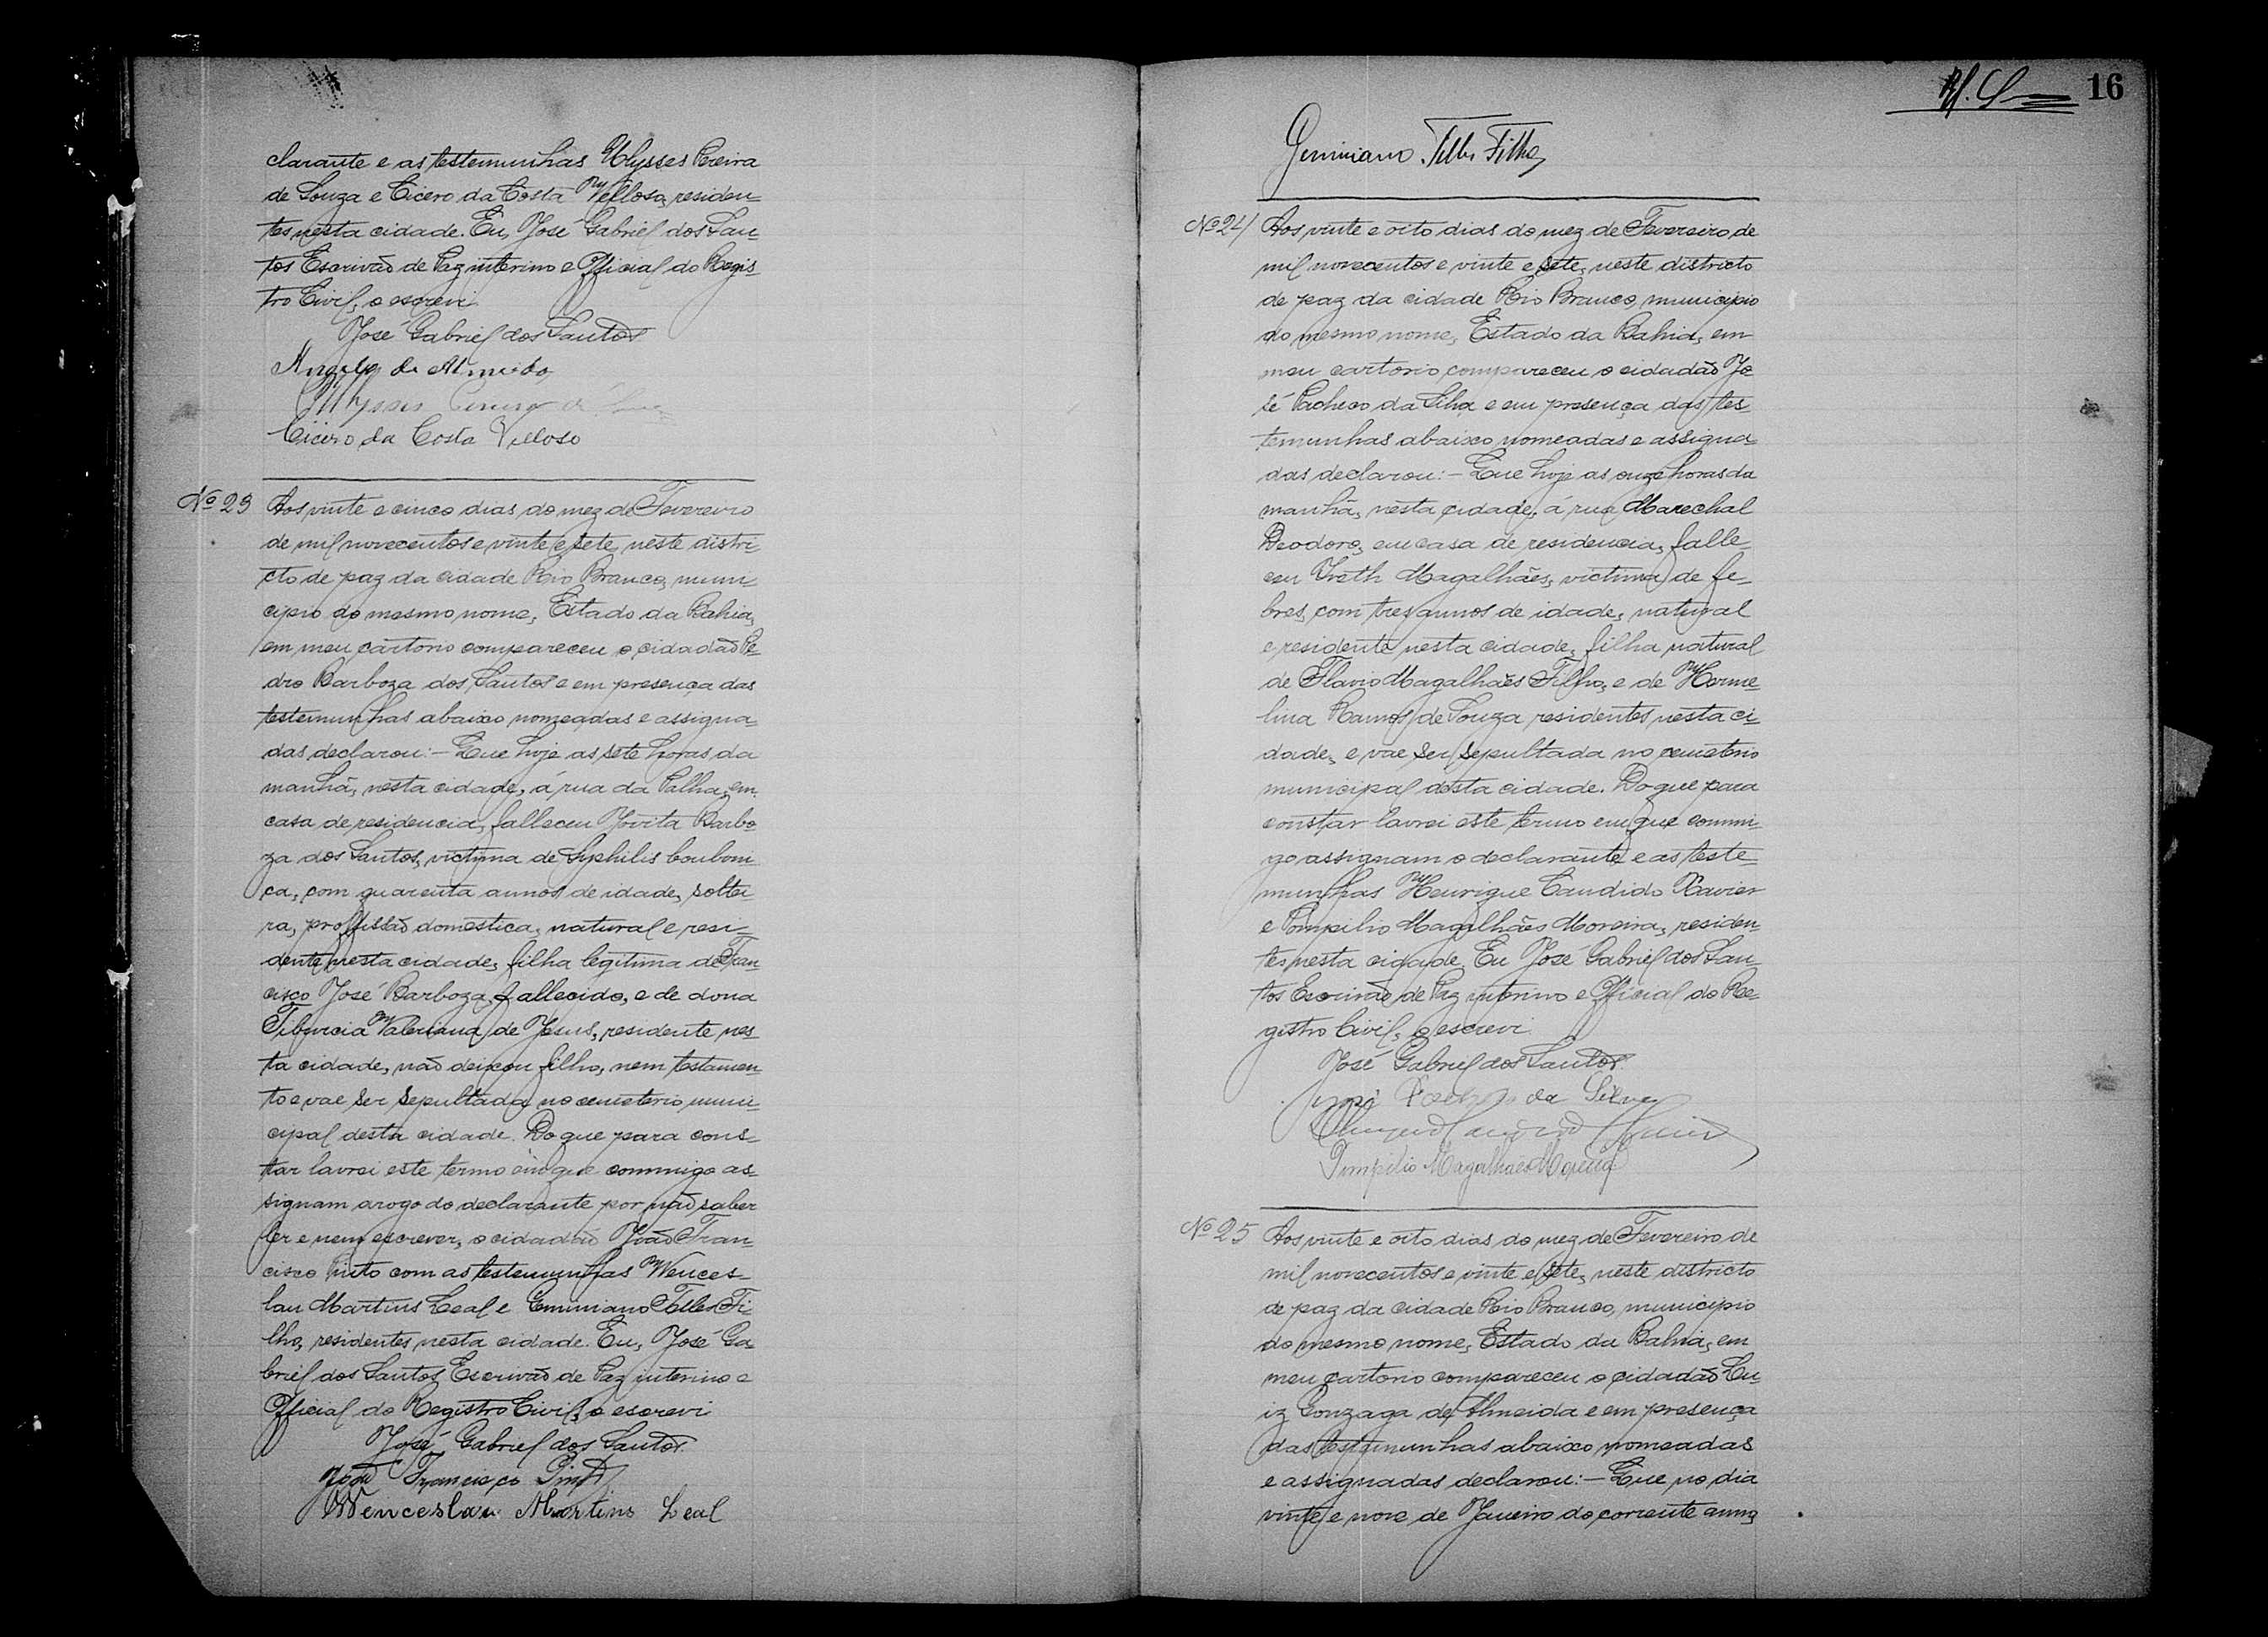 clarante e as testemunhas Ulysses Pereira
de Souza e Cicero da Costa Velloso, residen-
tes nesta cidade. Eu, José Gabriel dos San-
tos Escrivão de Paz interino e Official do Regis-
tro Civil, o escrevi.
José Gabriel dos Santos
Angelo de Almeida
Ulysses Pereira de
Cicero da Costa Velloso
Nº 23 Aos vinte e cinco dias do mez de Fevereiro
de mil novecentos e vinte e sete, neste distri-
cto de paz da cidade Rio Branco, muni-
cipio do mesmo nome, Estado da Bahia,
em meu cartorio compareceu o cidadão Pe-
dro Barboza dos Santos e em presença das
testemunhas abaixo nomeadas e assigna-
das declarou:- Que hoje as sete horas da
manhã, nesta cidade, á rua da Palha, em
casa de residencia, falleceu Jovita Barbo-
za dos Santos, victima de Syphilis bouboni
ca, com quarenta annos de idade, soltei-
ra, proffissão domestica, natural e resi-
dente nesta cidade, filha legitima de Fran-
cisco José Barboza, fallecido, e de dona
Tiburcia Valeriana de Jesus, residente nes-
ta cidade, não deixou filho, nem testamen-
to e vae ser sepultada no cemeterio muni-
cipal desta cidade. Do que para cons-
tar lavrei este termo em que commigo as-
signam arogo do declarante por não saber
ler e nem escrever, o cidadão João Fran-
cisco Pinto com as testemunhas Wences-
lau Martins Leal e Geminiano Telles Fi-
lho, residentes nesta cidade. Eu, José Ga-
briel dos Santos, Escrivão de Paz interino e
Official do Registro Civil, o escrevi
José Gabriel dos Santos.
João Francisco Pinto
Wenceslau Martins Leal
16
Geminiano Telles Filho
Nº 24 Aos vinte e oito dias do mez de Fevereiro de
mil novecentos e vinte e sete, neste districto
de paz da cidade Rio Branco, municipio
do mesmo nome, Estado da Bahia, em
meu cartorio compareceu o cidadão Jo
sé Pacheco da Silva e em presença das tes-
temunhas abaixo nomeadas e assigna-
das declarou:- Que hoje as onze horas da
manhã, nesta cidade, á rua Marechal
Deodoro, em casa de residencia, falle-
ceu Ireth Magalhães, victima de fe-
bres, com tres annos de idade, natural
e residente nesta cidade, filha natural
de Flavio Magalhães Filho, e de Herme-
lina Ramos de Souza residentes nesta ci-
dade, e vae ser sepultada no cemeterio
municipal desta cidade. Do que para
constar lavrei este termo em que commi-
go assignam o declarante e as teste-
munhas Henrique Candido Xavier
e Pompilio Magalhães Moreira, residen-
tes nesta cidade. Eu José Gabriel dos San-
tos Escrivão de Paz interino e Official do Re-
gistro Civil, o escrevi.
José Gabriel dos Santos.
José Pacheco da Silva
Pompilio Magalhães Moreira
Nº 25 Aos vinte e oito dias do mez de Fevereiro de
mil novecentos e vinte e sete, neste districto
de paz da cidade Rio Branco, municipio
do mesmo nome, Estado da Bahia, em
meu cartorio compareceu o cidadão Lu-
iz Gonzaga de Almeida e em presença
das testemunhas abaixo nomeadas
e assignadas declarou:- Que no dia
vinte e nove de Janeiro do corrente anno,